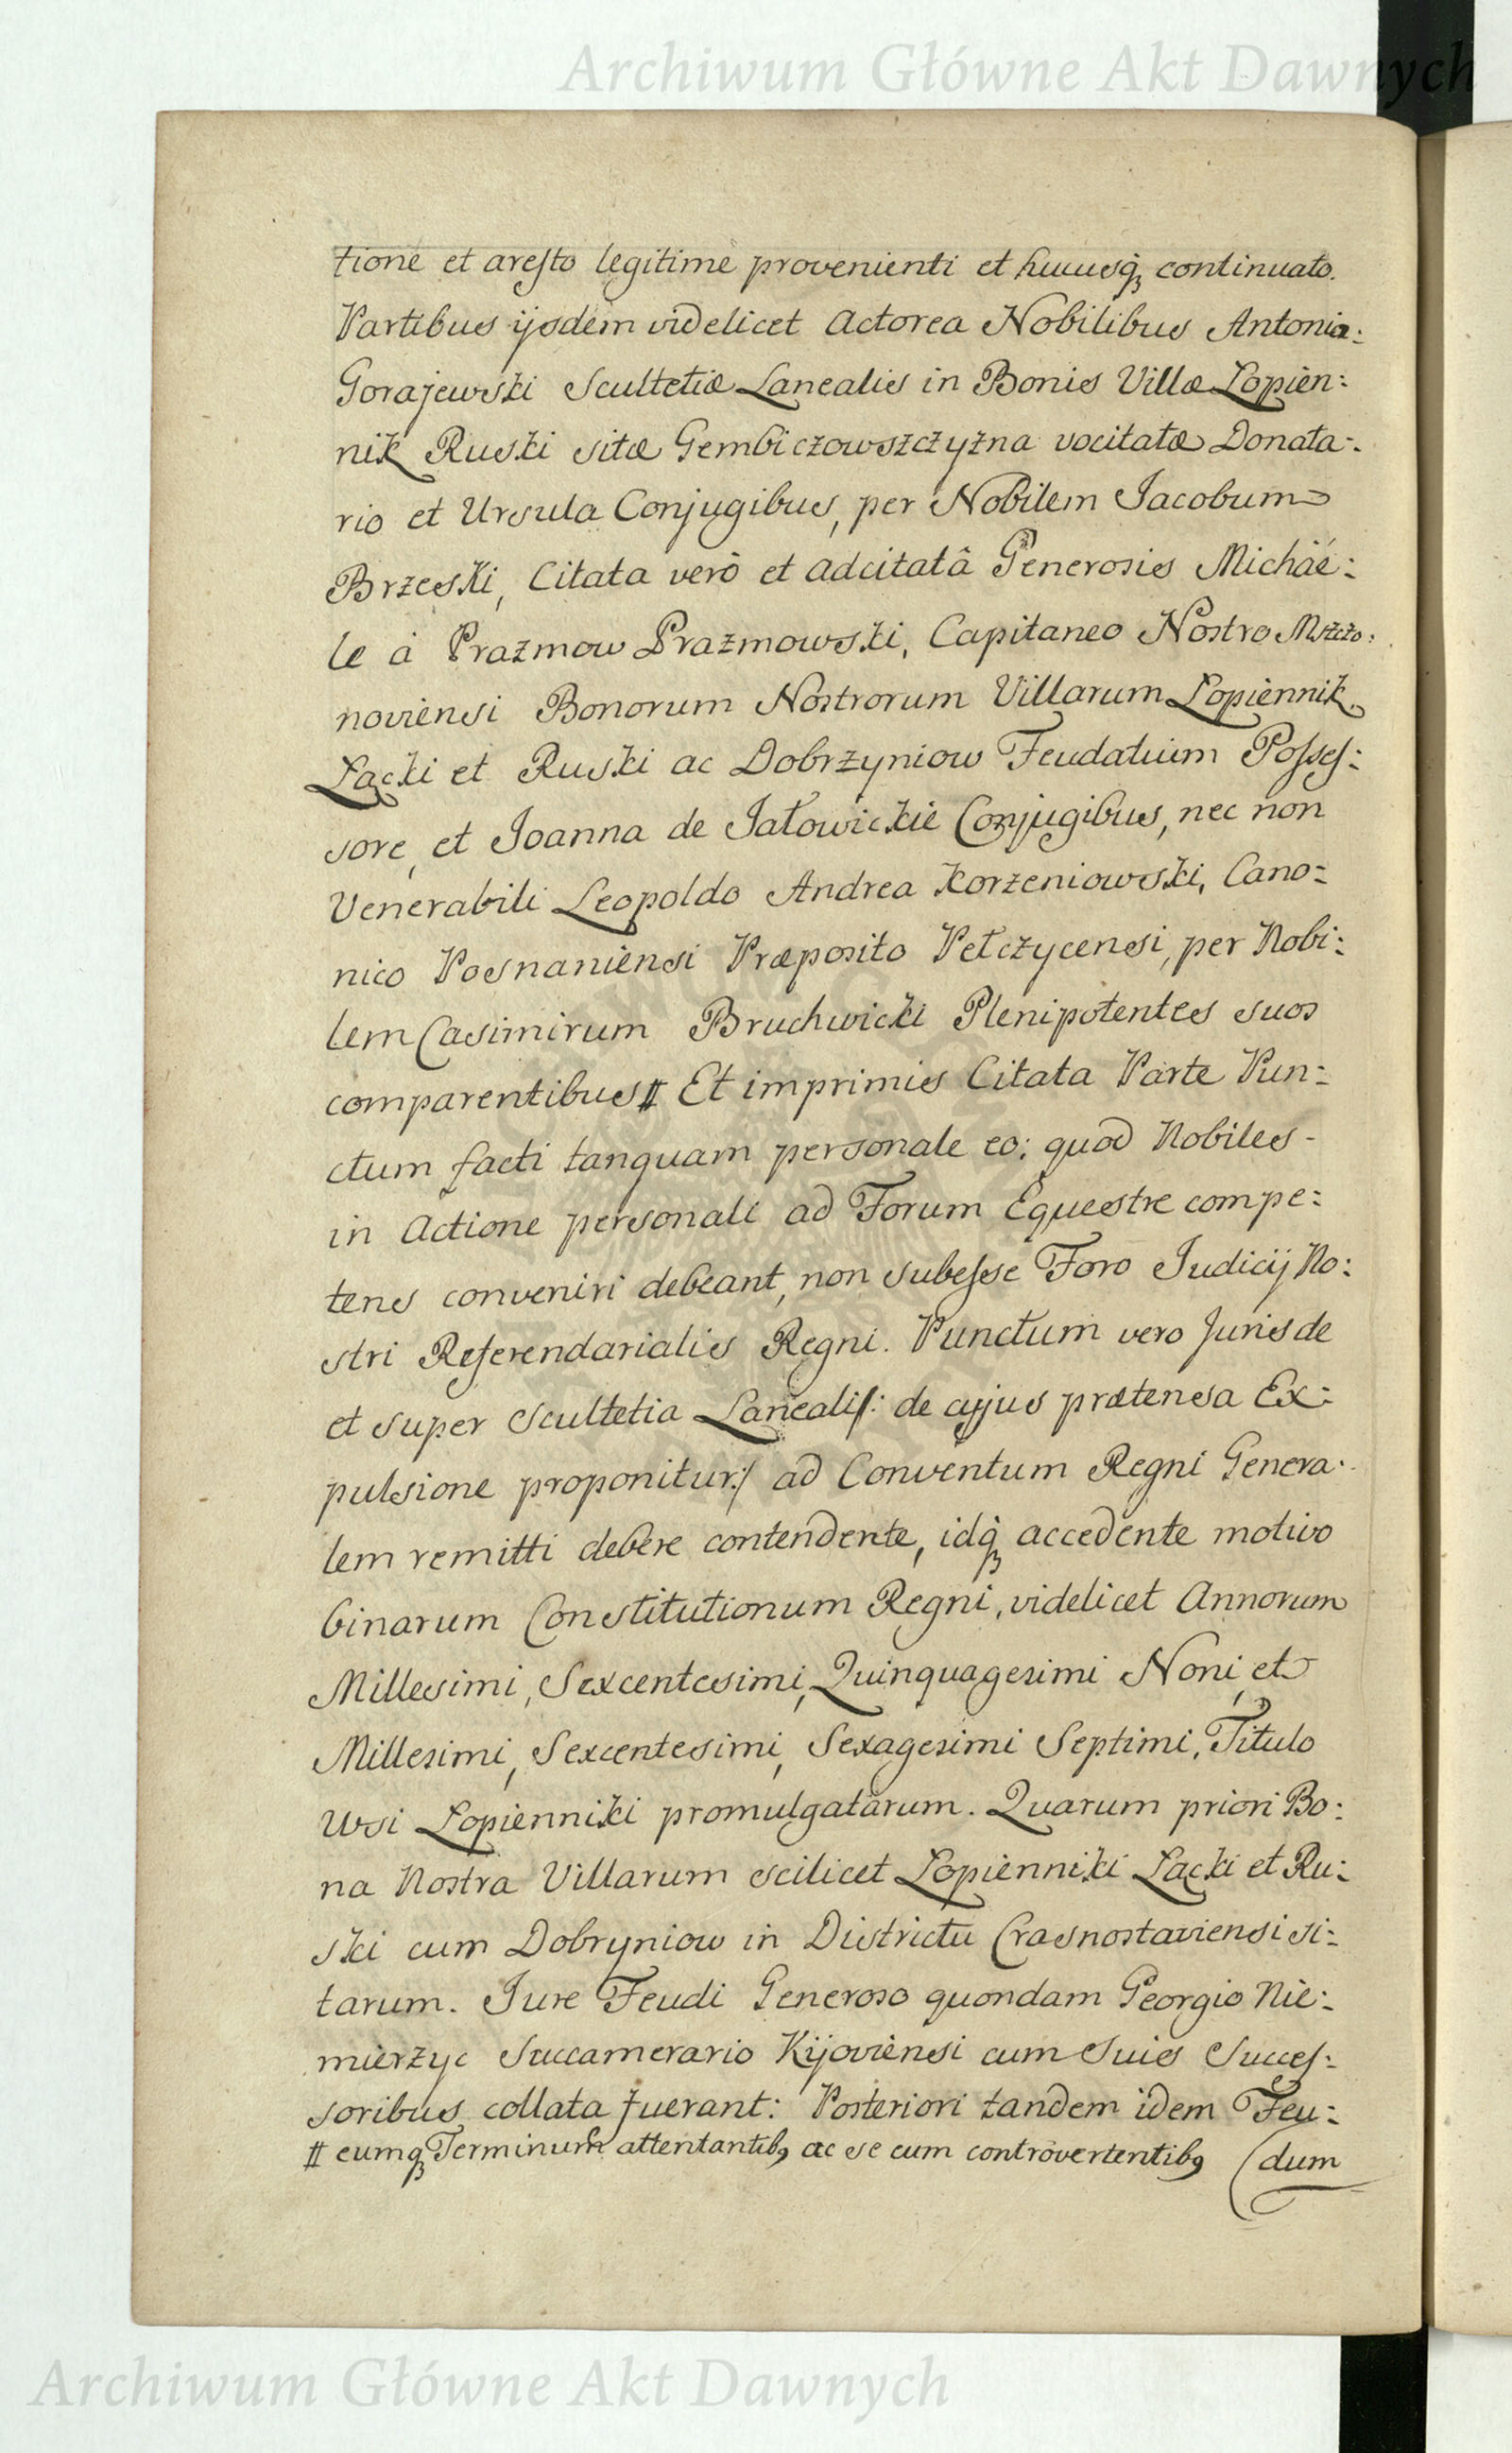 Archiwum Główne Akt Dawnych
tione et aresto legitime provenienti et hucusq; continuato.
Partibus ijsdem videlicet Actorea Nobilibus Antonio:
Gorajewski Scultetiæ Lanealis in Bonis Villæ Łopien:
nik Ruski sitæ Gembiczowszczyzna vocitatæ Donata:
rio et Ursula Conjugibus, per Nobilem Jacobum
Brzeski, Citata verò et adcitatâ Generosis Michaë:
le à Prazmow Prazmowski, Capitaneo Nostro Mszczo:
noviensi Bonorum Nostrorum Villarum Łopiennik
Łacki et Ruski ac Dobrzyniow Feudatuim Posses:
sore, et Joanna de Jałowickie Conjugibus, nec non
Venerabili Leopoldo Andrea Korzeniowski, Cano:
nico Posnaniensi Præposito Pełczycensi, per Nobi:
lem Casimirum Bruchwicki Plenipotentes suos
comparentibus # Et imprimis Citata Parte Pun:
ctum facti tanquam personale eo: quod Nobiles -
in Actione personali ad Forum Equestre compe:
tens conveniri debeant, non subesse Foro Judicij No:
stri Referendarialis Regni. Punctum vero Juris de
et super Scultetia Laneali /: de cujus prætensa Ex:
pulsione proponitur :/ ad Conventum Regni Genera:
lem remitti debere contendente, idq; accedente motivo
binarum Constitutionum Regni, videlicet Annorum
Millesimi, Sexcentesimi, Quinquagesimi Noni, et
Millesimi, Sexcentesimi, Sexagesimi Septimi, Titulo
Wsi Łopienniki promulgatarum. Quarum priori Bo:
na Nostra Villarum scilicet Łopienniki Łacki et Ru:
ski cum Dobryniow in Districtu Crasnostaviensi si:
tarum. Jure Feudi Generoso quondam Georgio Nie:
mierzyc Succamerario Kijoviensi cum Suis Succes:
soribus collata fuerant: Posteriori tandem idem Feu:
# eumq; Terminum attentantib9 ac se cum controvertentib9 (dum
Archiwum Główne Akt Dawnych